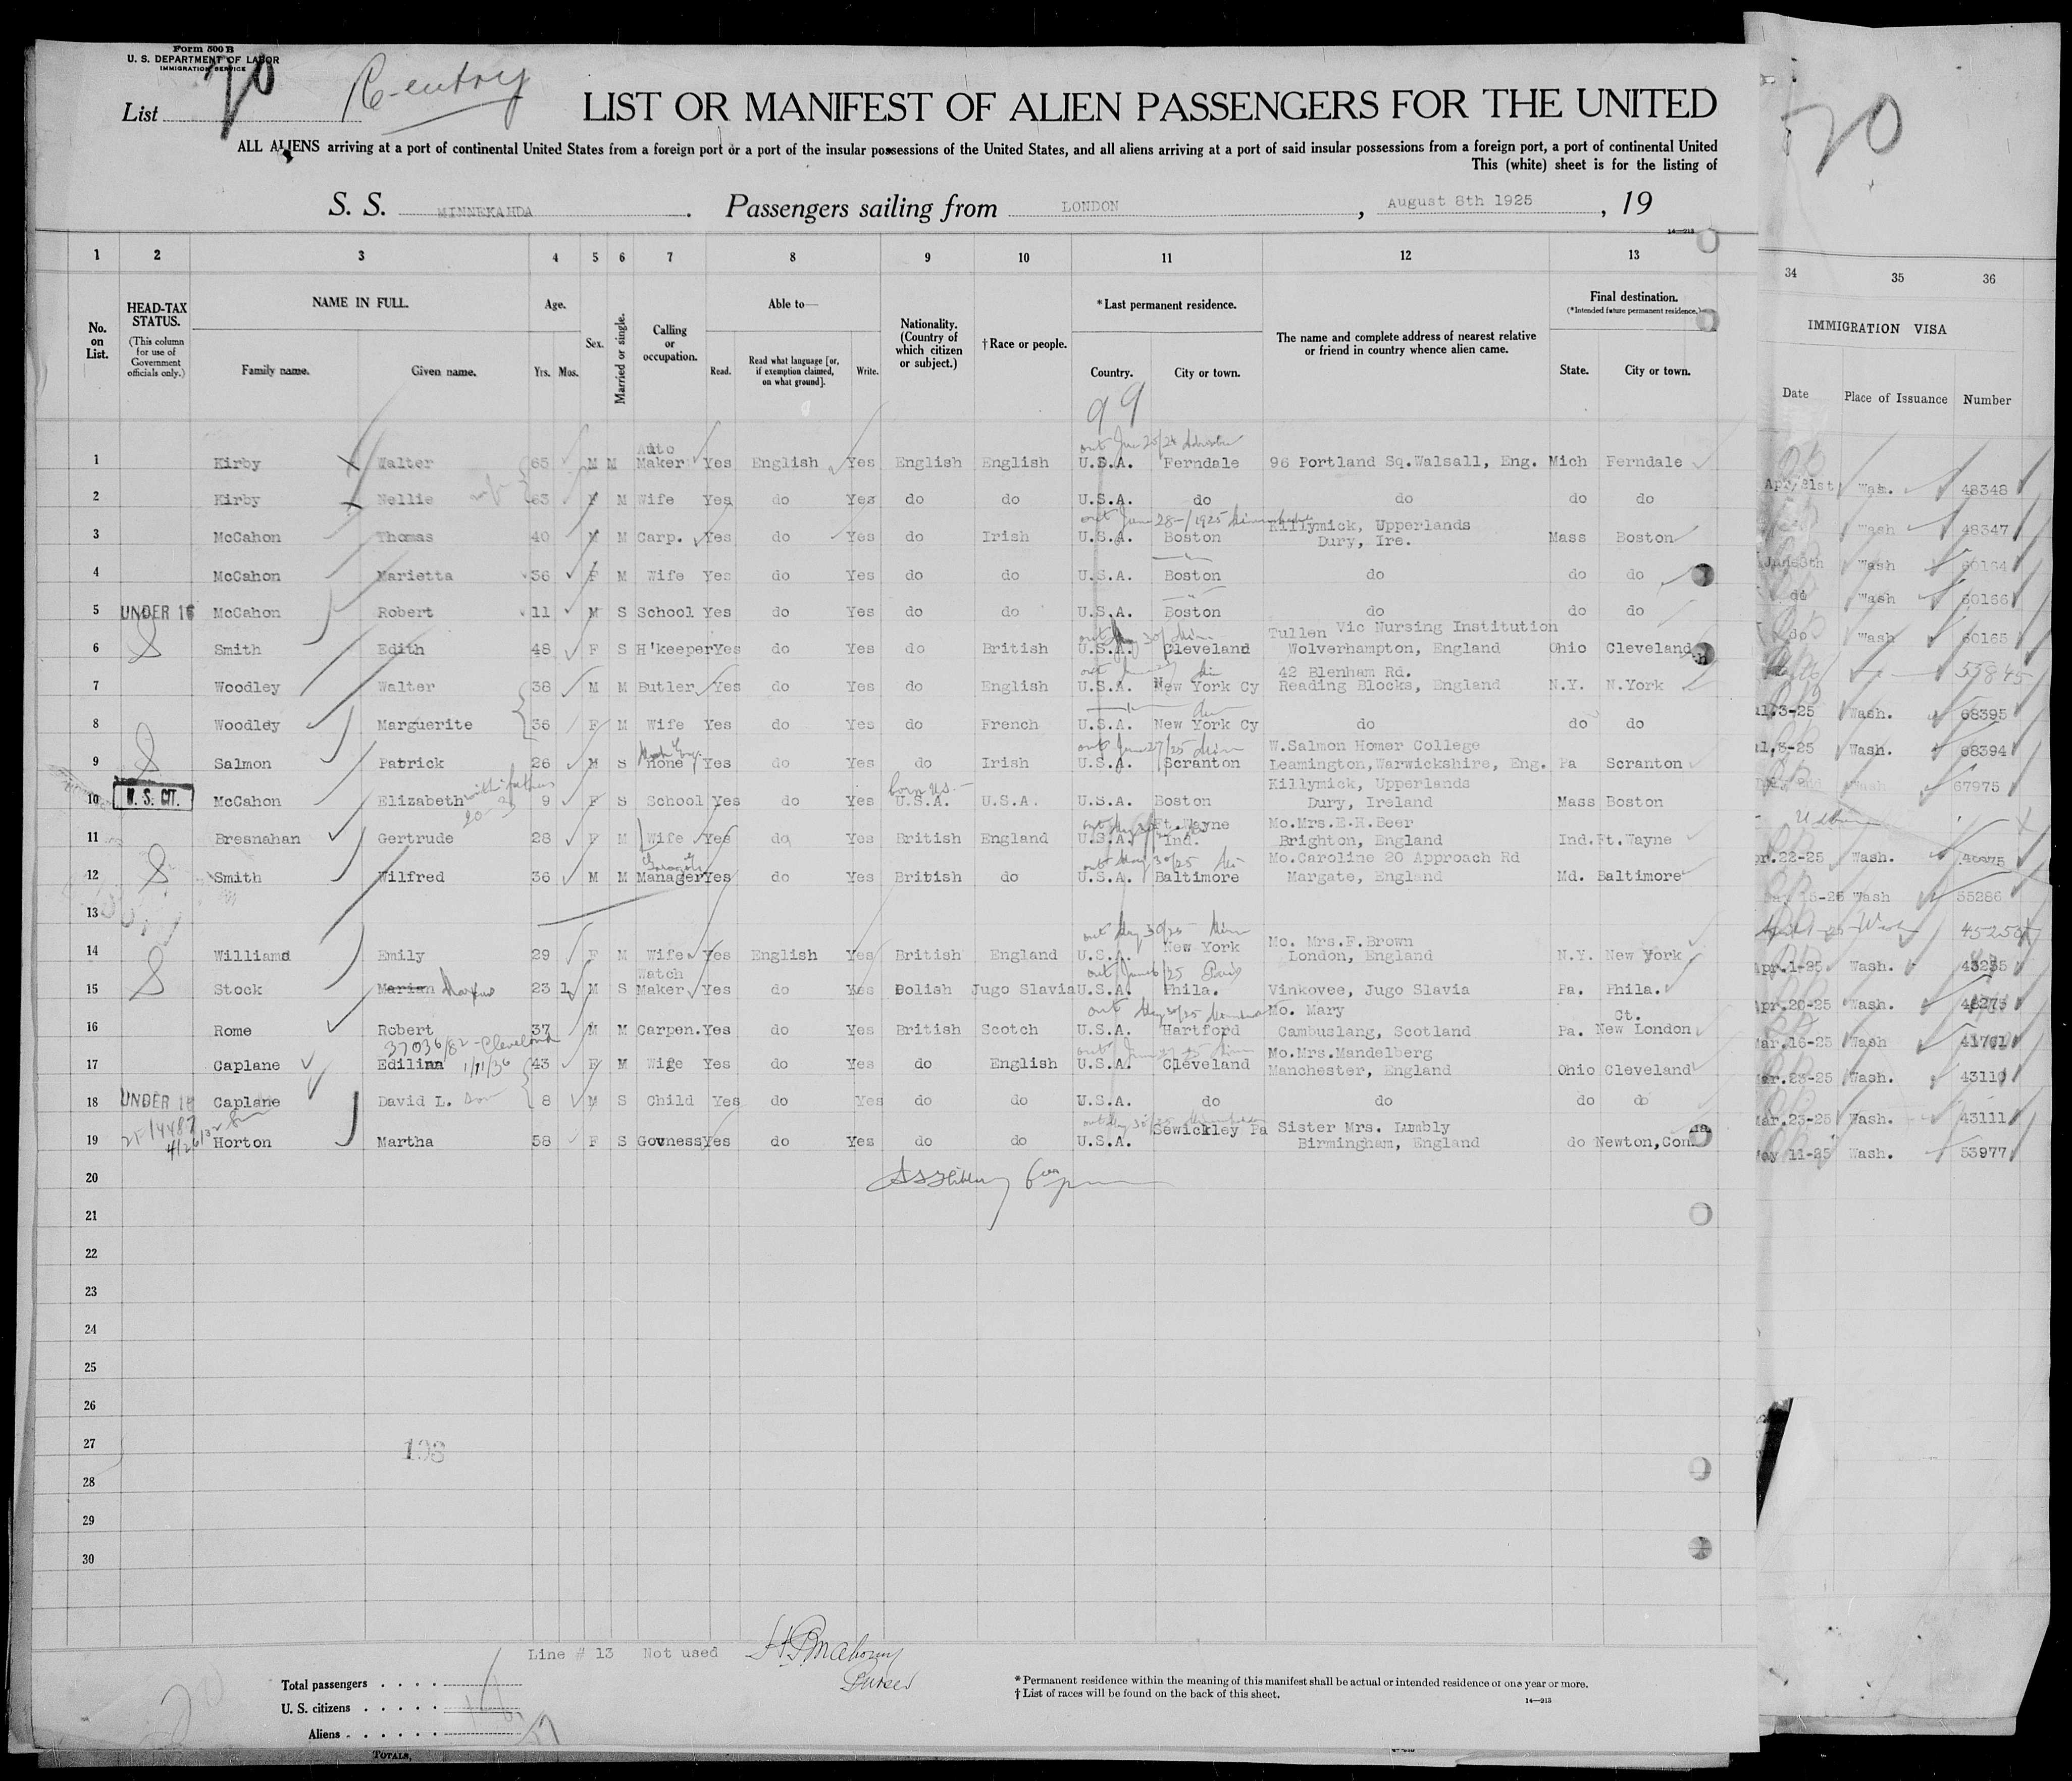 Form 500 B
U. S. DEPARTMENT OF LABOR
IMMIGRATION SERVICE
List 70
Re-entry
LIST OR MANIFEST OF ALIEN PASSENGERS FOR THE UNITED
ALL ALIENS arriving at a port of continental United States from a foreign port or a port of the insular possessions of the United States, and all aliens arriving at a port of said insular possessions from a foreign port, a port of continental United
This (white) sheet is for the listing of
S. S. MINNEKAHDA. Passengers sailing from LONDON, August 8th 1925, 19
14—213
1 2 3 4 5 6 7 8 9 10 11 12 13
No. on List.
HEAD-TAX STATUS.
(This column for use of Government officials only.)
NAME IN FULL.
Family name. Given name.
Age.
Yrs. Mos.
Sex.
Married or single.
Calling or occupation.
Able to—
Read. Read what language [or, if exemption claimed, on what ground]. Write.
Nationality. (Country of which citizen or subject.)
† Race or people.
* Last permanent residence.
Country. City or town.
The name and complete address of nearest relative or friend in country whence alien came.
Final destination.
(* Intended future permanent residence.)
State. City or town.
99
1 Kirby Walter 65 M M Auto Maker Yes English Yes English English U.S.A. Ferndale 96 Portland Sq.Walsall, Eng. Mich Ferndale
2 Kirby Nellie wife 63 F M Wife Yes do Yes do do U.S.A. do do do do
out June 28-/1925
3 McCahon Thomas 40 M M Carp. Yes do Yes do Irish U.S.A. Boston Killymick, Upperlands Dury, Ire. Mass Boston
4 McCahon Marietta 36 F M Wife Yes do Yes do do U.S.A. Boston do do do
5 UNDER 16 McCahon Robert 11 M S School Yes do Yes do do U.S.A. Boston do do do
6 Smith Edith 48 F S H'keeper Yes do Yes do British U.S.A. Cleveland Tullen Vic Nursing Institution Wolverhampton, England Ohio Cleveland
7 Woodley Walter 38 M M Butler Yes do Yes do English U.S.A. New York Cy 42 Blenham Rd. Reading Blocks, England N.Y. N.York
8 Woodley Marguerite 36 F M Wife Yes do Yes do French U.S.A. New York Cy do do do
out June 27/25
9 Salmon Patrick 26 M S none Yes do Yes do Irish U.S.A. Scranton W.Salmon Homer College Leamington,Warwickshire, Eng. Pa Scranton
10 U. S. CIT. McCahon Elizabeth with father 9 F S School Yes do Yes born US.- U.S.A. U.S.A. U.S.A. Boston Killymick, Upperlands Dury, Ireland Mass Boston
11 Bresnahan Gertrude 28 F M Wife Yes do Yes British England U.S.A. Ft.Wayne Ind. Mo.Mrs.E.H.Beer Brighton, England Ind. Ft.Wayne
out May 30/25
12 Smith Wilfred 36 M M Manager Yes do Yes British do U.S.A. Baltimore Mo.Caroline 20 Approach Rd Margate, England Md. Baltimore
13
out May 30/25
14 Williams Emily 29 F M Wife Yes English Yes British England U.S.A. New York Mo. Mrs.F.Brown London, England N.Y. New York
out June 6/25 Paris
15 Stock Marian Markus 23 1 M S Watch Maker Yes do Yes Polish Jugo Slavia U.S.A. Phila. Vinkovee, Jugo Slavia Pa. Phila.
16 Rome Robert 37 M M Carpen. Yes do Yes British Scotch U.S.A. Hartford Mo. Mary Cambuslang, Scotland Pa. Ct. New London
37036/82-Cleveland 1/11/36
17 Caplane Edilina 43 F M Wife Yes do Yes do English U.S.A. Cleveland Mo.Mrs.Mandelberg Manchester, England Ohio Cleveland
18 UNDER 16 Caplane David L. Son 8 M S Child Yes do Yes do do U.S.A. do do do do
19 Horton Martha 58 F S Govness Yes do Yes do do U.S.A. Sewickley Pa Sister Mrs. Lumbly Birmingham, England do Newton,Conn
20
21
22
23
24
25
26
27
28
29
30
108
Line # 13 Not used
Purser
Total passengers
U. S. citizens
Aliens
TOTALS,
* Permanent residence within the meaning of this manifest shall be actual or intended residence of one year or more.
† List of races will be found on the back of this sheet.
14—213
70
34 35 36
IMMIGRATION VISA
Date Place of Issuance Number
Apr/21st Wash. 48348
Wash 48347
June 8th Wash 60164
do Wash 60166
do Wash 60165
55845
3-25 Wash. 68395
3-25 Wash. 68394
Wash 67975
22-25 Wash.
15-25 Wash 55286
Wash
Apr.1-25 Wash. 43235
Apr.20-25 Wash. 48275
Mar.16-25 Wash 41701
Mar.23-25 Wash. 43110
Mar.23-25 Wash. 43111
May 11-25 Wash. 53977